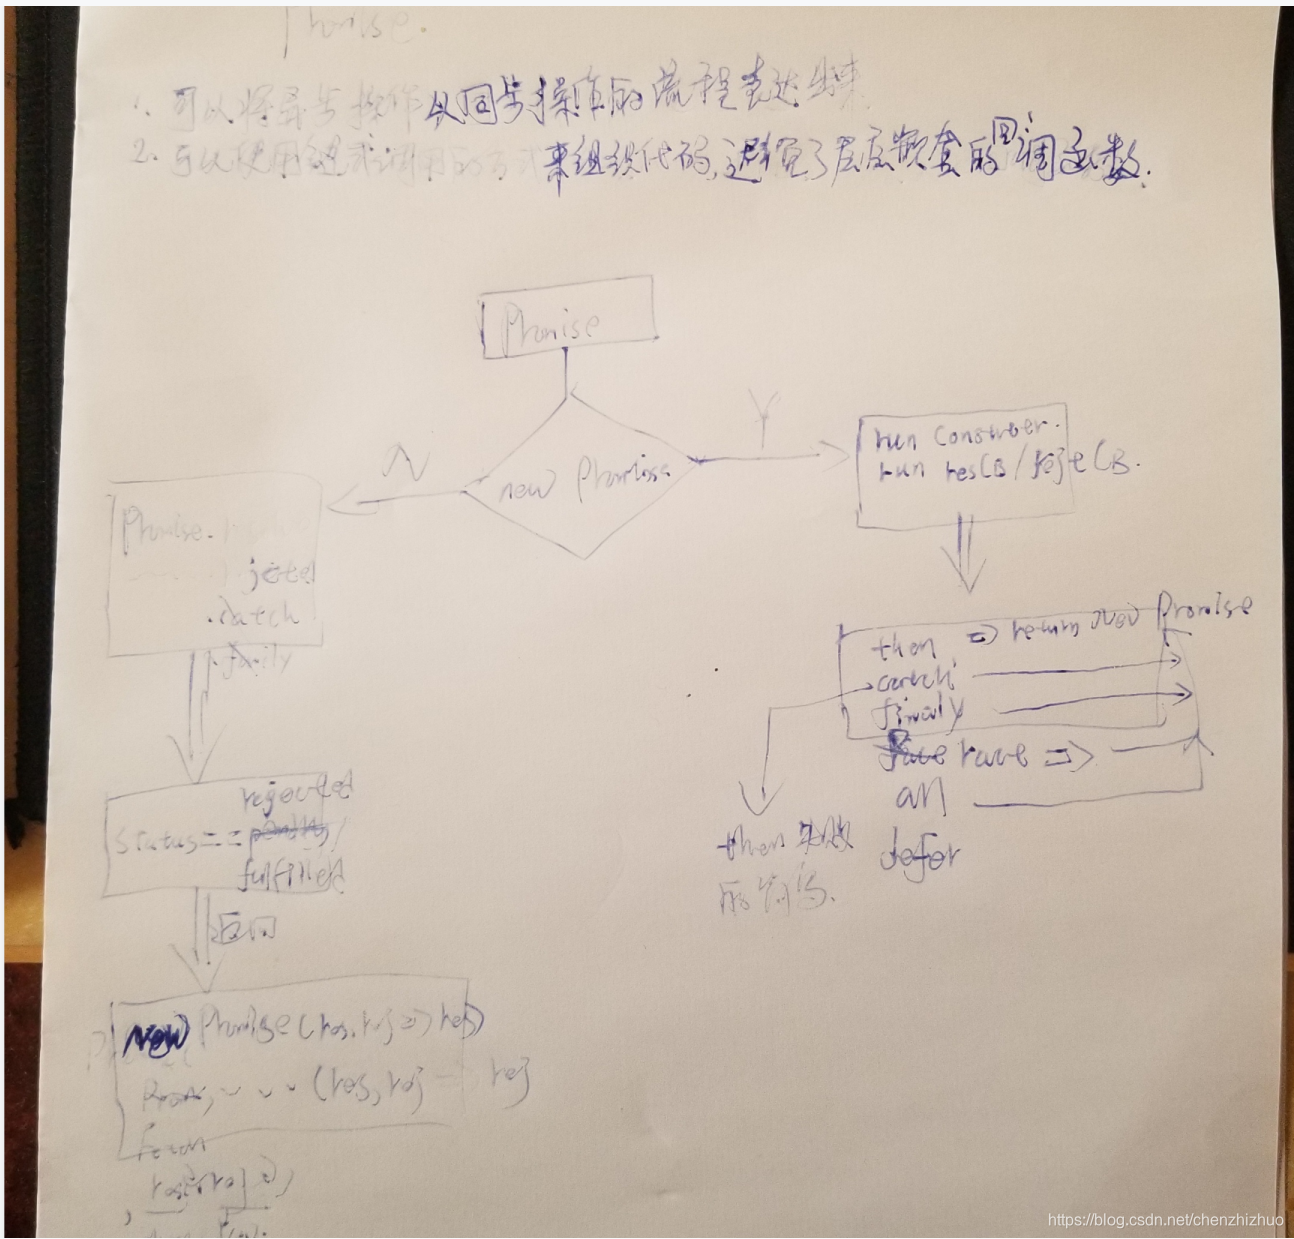 Promise.
1. 可以将异步操作以同步操作的流程表达出来
2. 可以使用链式调用的方式来组织代码,避免了层层嵌套的回调函数.
Promise
N
Y
new Promise
run
run resCB / rejectCB.
Promise.
jected
.catch
then => return new Promise
catch
finaly
race =>
all
defer
then 失败
的
rejected
status==
fulfilled
返回
new Promise (res, rej => res)
(res, rej = rej
https://blog.csdn.net/chenzhizhuo